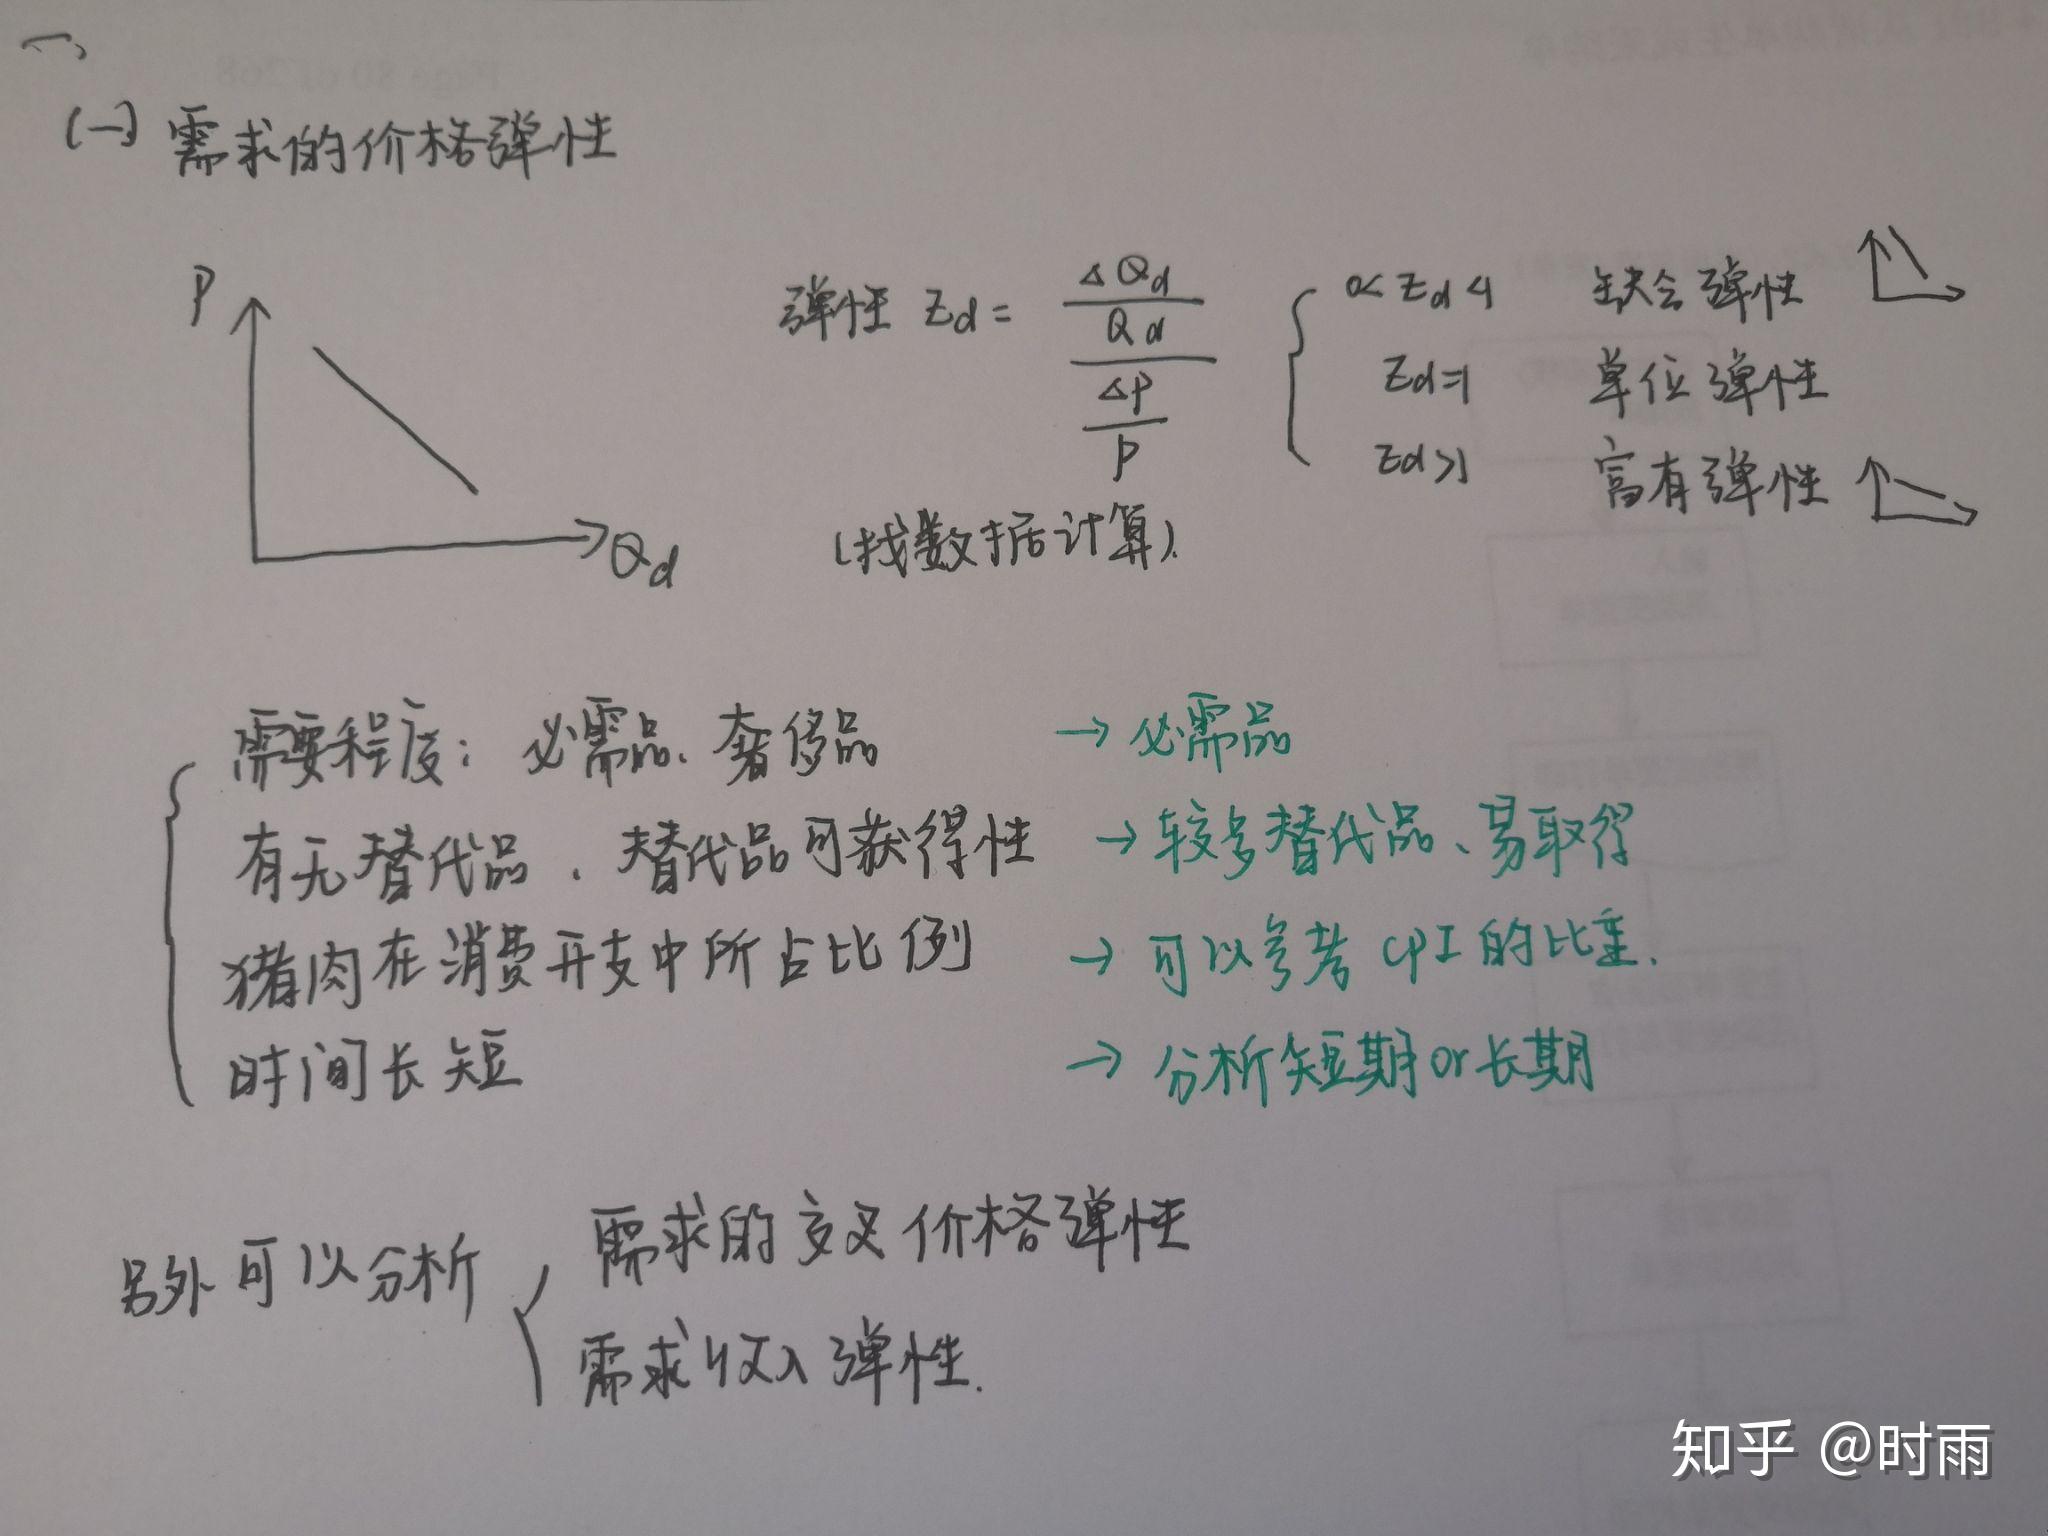 一、
(一) 需求的价格弹性
P
Qd
弹性 Ed = ΔQd / Qd / ΔP / P
0<Ed<1 缺乏弹性
Ed=1 单位弹性
Ed>1 富有弹性
(找数据计算).
需要程度: 必需品、奢侈品 → 必需品
有无替代品、替代品可获得性 → 较多替代品、易取得
猪肉在消费开支中所占比例 → 可以参考 CPI 的比重.
时间长短 → 分析短期or长期
另外可以分析
需求的交叉价格弹性
需求收入弹性.
知乎 @时雨